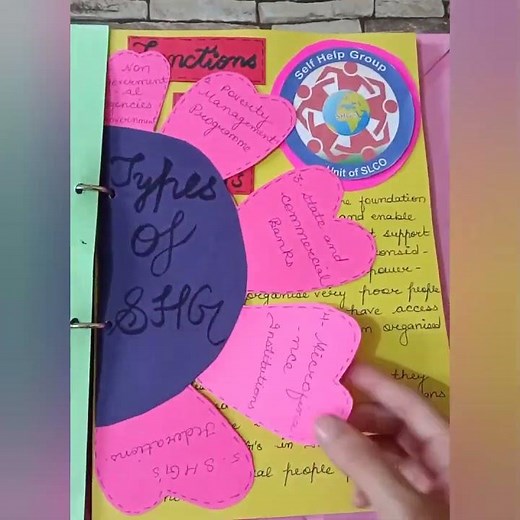 Functions
Self Help Group
SHG
Unit of SLCO
Non
Government-
-al
Agencies
2. Poverty
Management
Programme
Types
of
SHG
3. State and
commercial
Banks
4- Microfina
-nce
Institutions
5. SHG's
Federations.
he foundation
and enable
t support
onsid-
power-
organise very poor people
have access
n organised
they
ons
G's in
al people